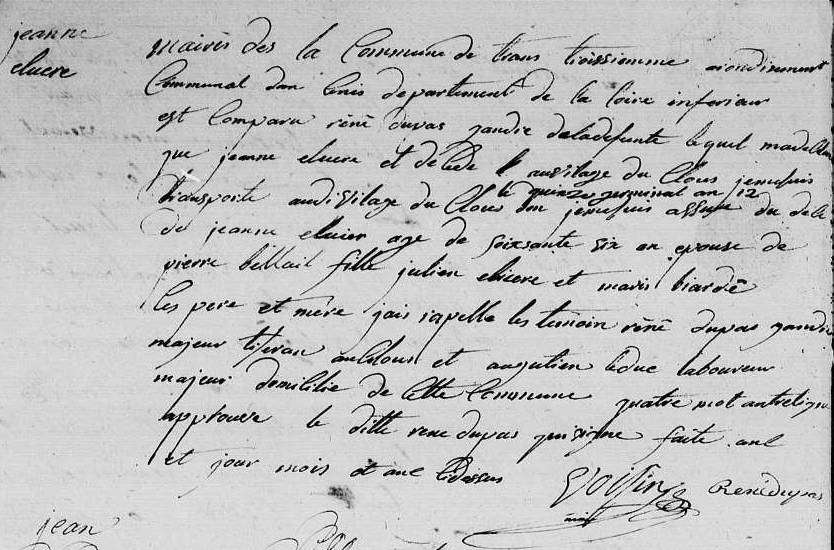 jeanne
eluere
maires des la Commune de trans troissiemme arondisement
Communal dan Cenis departement de la loire inferieur
est Comparu réné dupas gandre deladefunte lequel madeclare
que jeanne eluere et deCede le auvilage du Clous jemesuis
le quinze germinal an 12
transporte audivilage du Clous don jemesuis assure du dece
de jeanne eluier age de soixsante six an epouse de
pierre bellail fille julien eluere et marie hardé
les pere et mère jais rapelle les temoin réné dupas gandre
majeur tiseran auclous et augutien leduc laboureur
majeur domicilie de Cette Commune quatre mot antreligne
approuve le ditte rene dupas quisigne faite ané
et jour mois et ane Cidessus
Voisin
Renedupas
jean